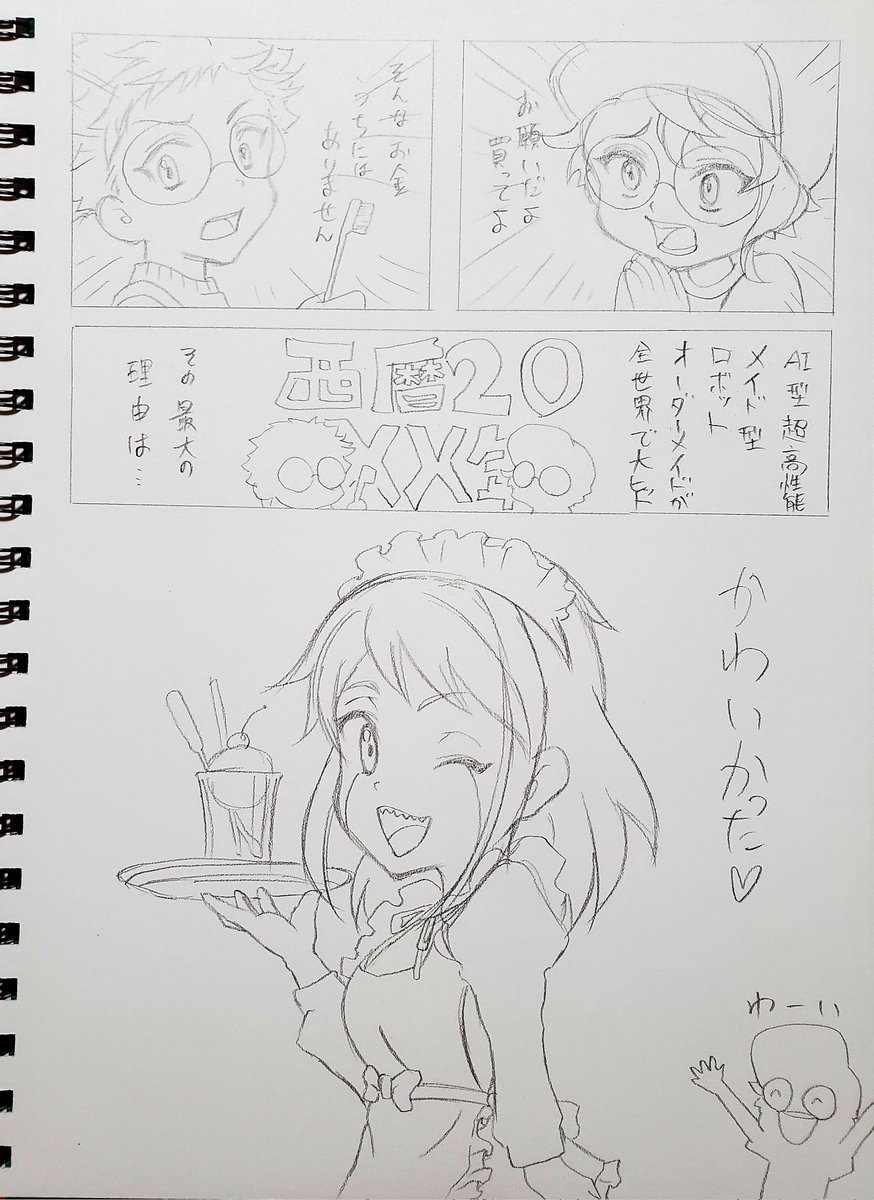 お願いだよ
買ってよ
そんなお金
うちには
ありません
AI型超高性能
メイド型
ロボット
オーダーメイドが
全世界で大ヒット
西暦20
XX年
その最大の
理由は…
かわいかった♡
わーい